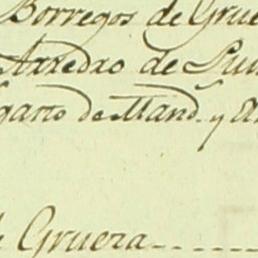 Borregos de Grue
Arredro de Lui
garto de Mand. y A
de Gruera